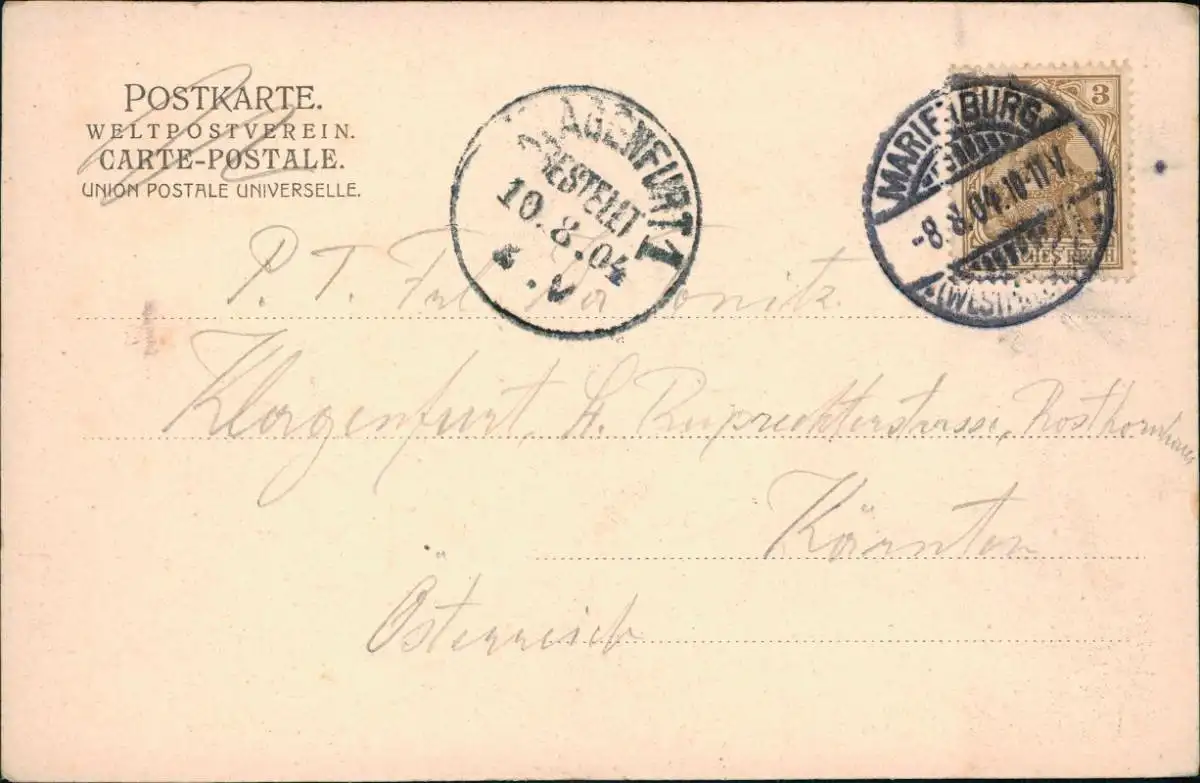 POSTKARTE.
WELTPOSTVEREIN.
CARTE-POSTALE.
UNION POSTALE UNIVERSELLE.
KLAGENFURT 1
BESTELLT
10.8.04
3
MARIENBURG
-8.8.04.10-11V.
(WESTPR.)
P. T. Frl.
Klagenfurt, St. Ruprechterstrasse, Rosthornhaus
Kärnten
Österreich